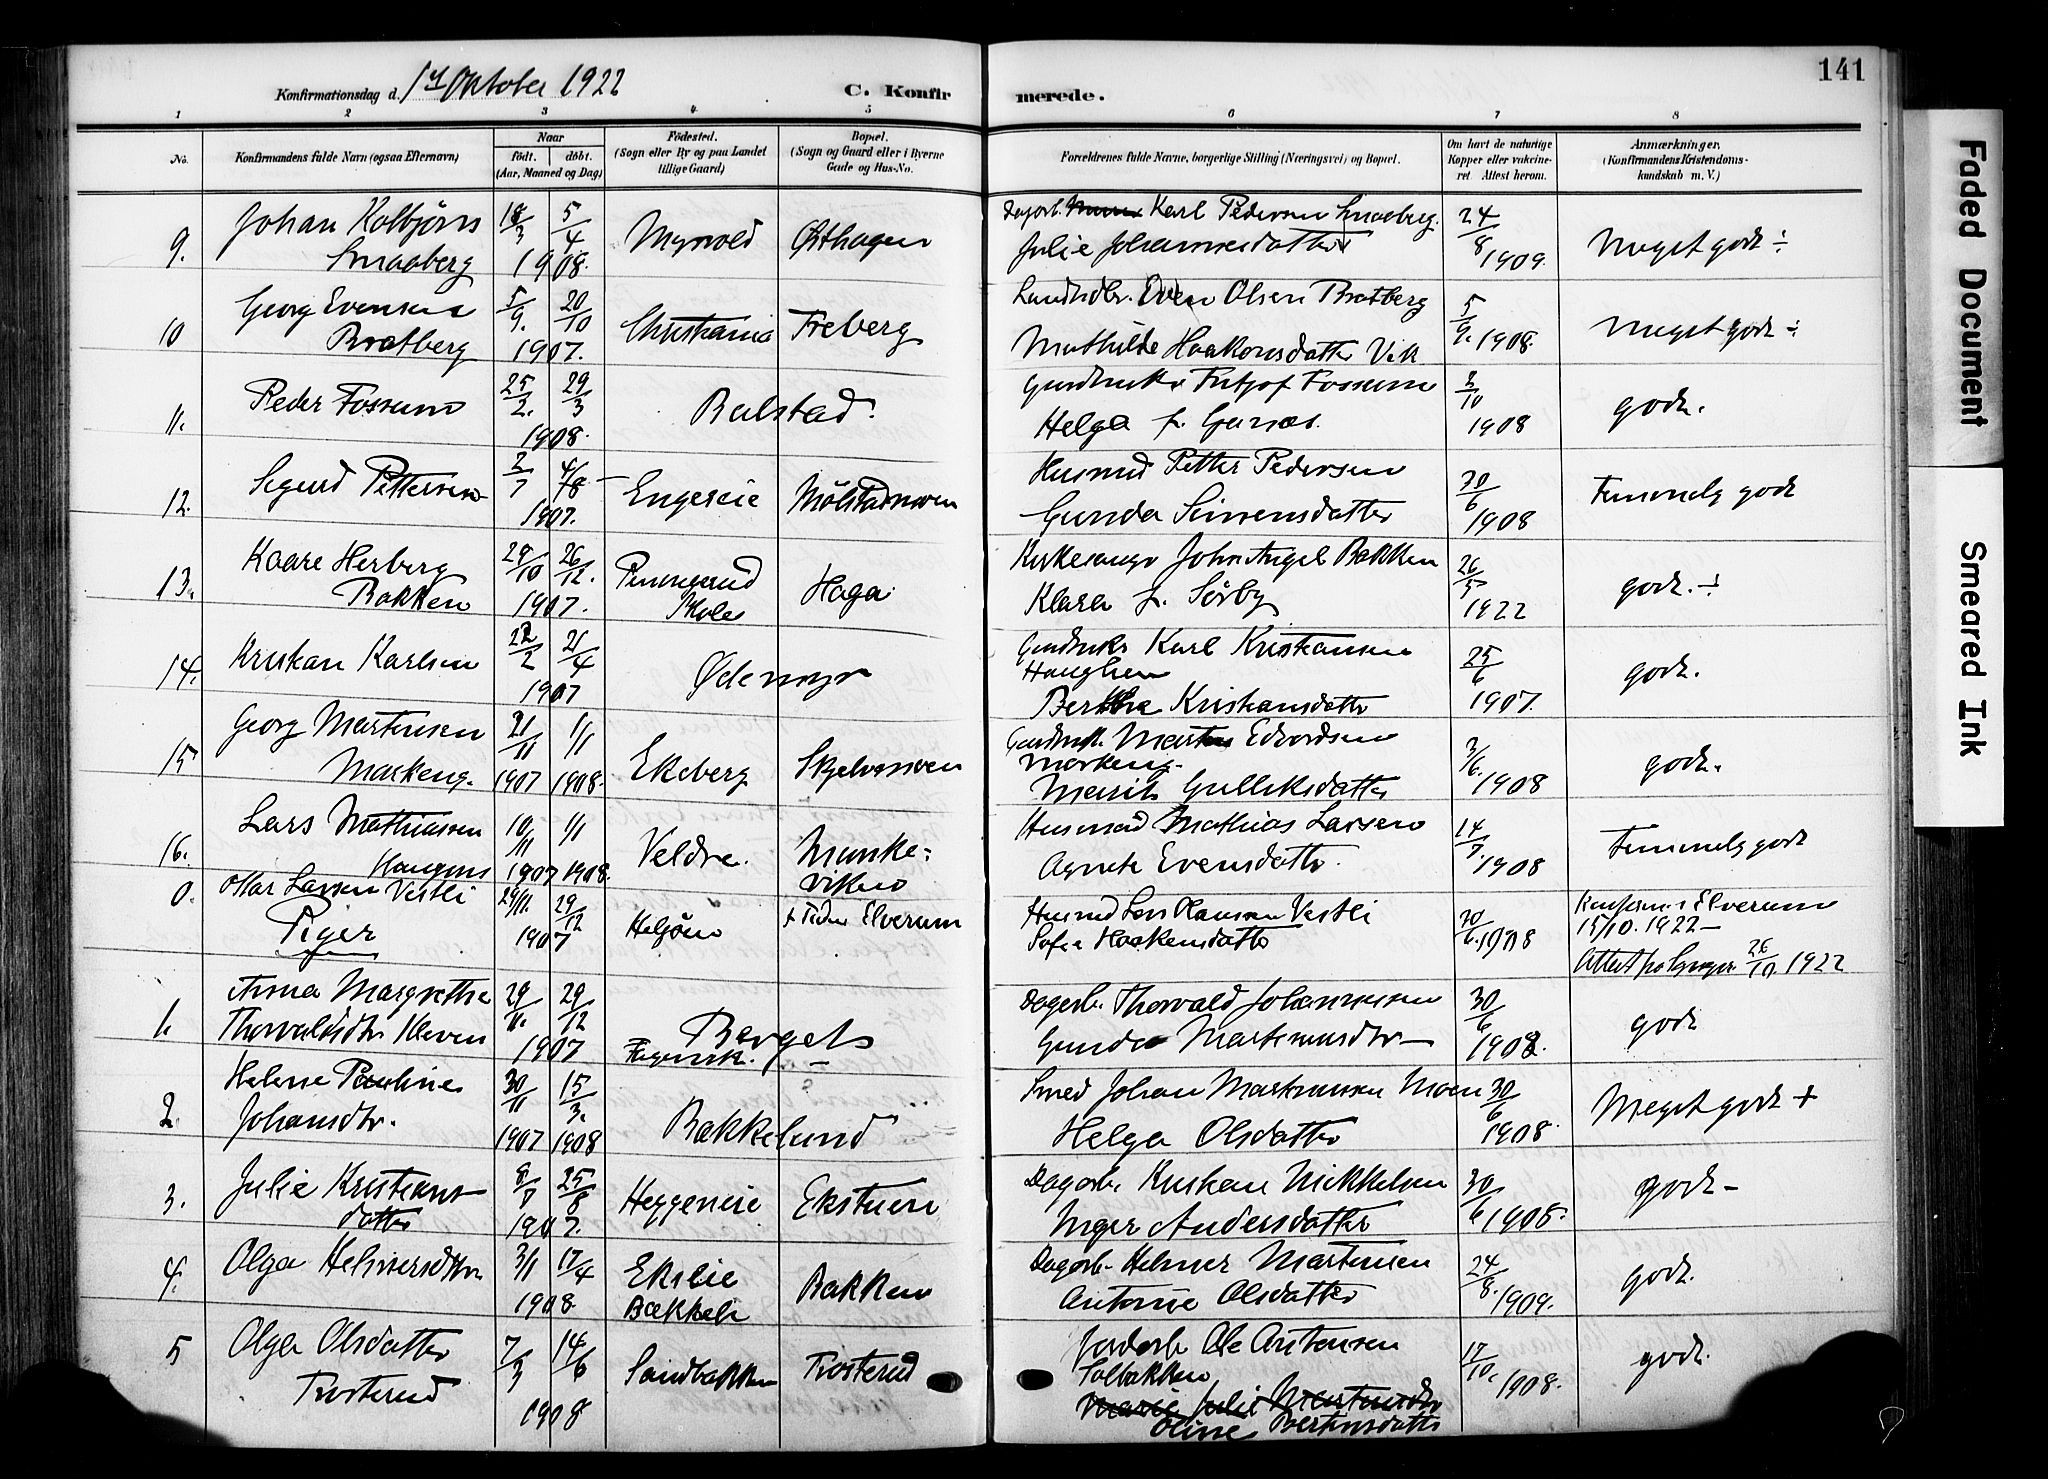 Konfirmationsdag d. 1st Oktober 1922
C. Konfirmerede.
141
1 2 3 4 5 6 7 8
No.
Konfirmandens fulde Navn (ogsaa Efternavn)
Naar
födt. döbt.
(Aar, Maaned og Dag)
Födested.
(Sogn eller By og paa Landet
tillige Gaard)
Bopæl.
(Sogn og Gaard eller i Byerne
Gade og Hus-No.
Forældrenes fulde Navne, borgerlige Stilling (Næringsvei) og Bopæl.
Om havt de naturlige
Kopper eller vakcine-
ret Attest herom.
Anmærkninger.
(Konfirmandens Kristendoms-
kundskab m. V.)
9. Johan Kolbjörn
Smaaberg
18/3 5/4
1908.
Myrvold
Østhagen
Dagarb. Karl Pedersen Smaaberg.
Julie Johannesdatter
24/8 1909.
Meget godt ÷
10 Georg Evensen
Bratberg
5/9. 20/10
1907.
Christiania
Freberg
Landhdlr. Even Olsen Bratberg
Mathilde Haakonsdatter Vik
5/9. 1908.
Meget godt ÷
11. Peder Fossum
25/2. 29/3
1908.
Balstad.
Gardbruker Fritjof Fossum
Helga f. Garnæs.
3/10
1908
godt.
12. Sigurd Pettersen
2/7 4/8
1907.
Engeseie
Mölstadmoen
Husmd Petter Pedersen
Gunda Simensdatter
30/6
1908
Temmelig godt
13. Kaare Herberg
Bakken
29/10 26/12.
1907.
Skole
Haga
Kirkesanger John Angel Bakken
Klara f. Sörby
26/5
1922
godt. ÷
14. Kristian Karlsen
22/2 21/4
1907
Ødemyr
Gardbruker Karl Kristiansen
Haughen
Berthe Kristiansdatter
25/6
1907.
godt.
15 Georg Martinsen
Markeng.
21/11 1/1
1907 1908.
Ekeberg
Skjelvesveen
Gardbruk. Martin Edvardsen
Markeng.
Marit Gulliksdatter
3/6. 1908
godt.
16. Lars Mathiassen
Haugens
10/11 1/1
1907 1908.
Veldre.
Munke-
viken
Husmand Mathias Larsen
Agnete Evensdatter.
14/7. 1908
Temmelig godt
0. Ottar Larsen Vestli
29/11. 29/12
1907
Heljöen
Elverum
Husmd Lars Hansen Vestli
Sofie Haakensdatter
30/6. 1908
Konfirmer. i Elverum
15/10. 1922 —
26/10. 1922
Piger
1. Anna Margrethe
Thorvaldsdtr. Kleven
29/11. 29/12
1907
Berget
Dagarb. Thorvald Johannessen
Gunda Martinusdtr —
30/6
1908.
godt
2. Helene Pauline
Johansdtr.
30/11 15/3.
1907 1908
Bakkelund
Smed Johan Martinussen Moen
Helga Olsdatter
30/6
1908.
Meget godt +
3. Julie Kristians-
datter
8/7 25/8
1907.
Heggeneie
Ekstuen
Dagarb. Kristian Mikkelsen
Inger Andersdatter
30/6 1908.
godt —
4. Olga Helmersdtr
3/1 17/4
1908.
Ekslie
Bækkeli
Bakken
Dagarb. Helmer Martinsen
Antonie Olsdatter
24/8. 1909.
godt.
5 Olga Olsdatter
Trosterud
7/3 14/6
1908
Sandbakken
Trosterud
Jordarb. Ole Antensen
Solbakken
Marie Julie Martinsdtr
Oline Bertinsdatter
17/10. 1908.
godt.
Faded Document
Smeared Ink